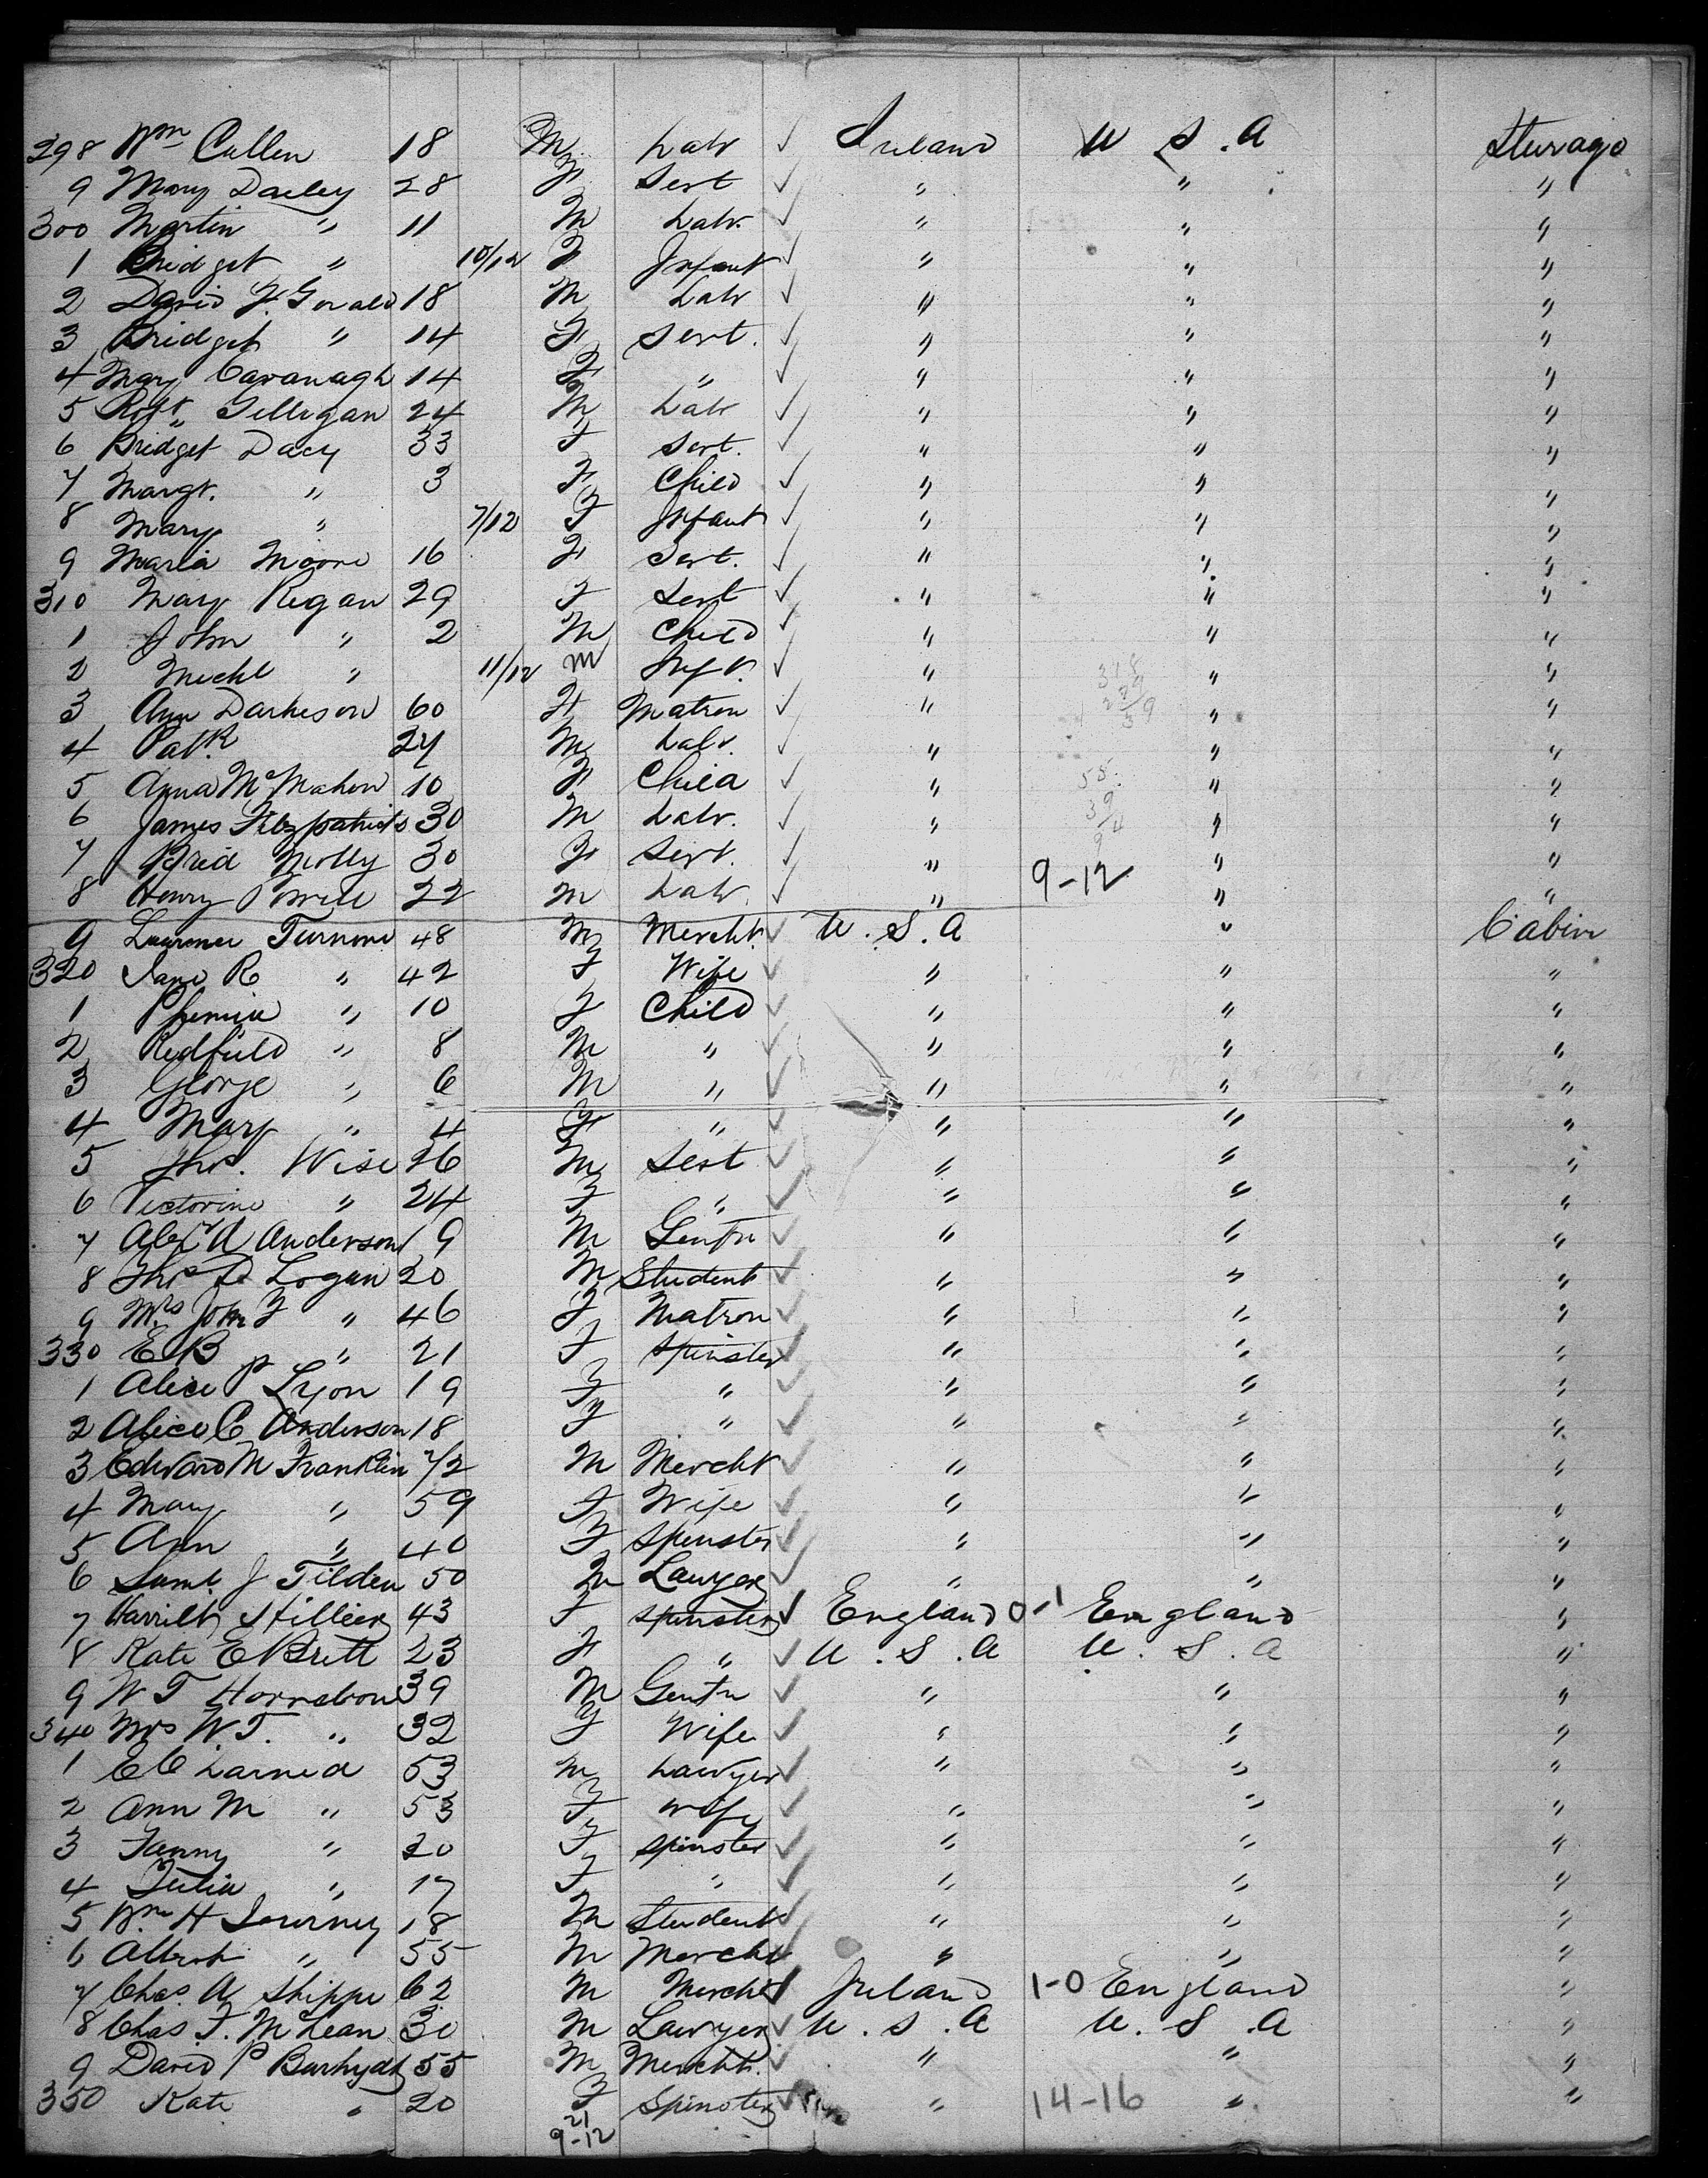 298 Wm Cullen 18 M Labr ✓ Ireland U.S.A Steerage
9 Mary Dacley 28 F Servt ✓ " " "
300 Martin " 11 M Labr. ✓ " " "
1 Bridget " 10/12 F Infant ✓ " " "
2 David F. Gerald 18 M Labr ✓ " " "
3 Bridget " 14 F Servt. ✓ " " "
4 Mary Cavanagh 14 F " ✓ " " "
5 Robt. Gilligan 24 M Labr ✓ " " "
6 Bridget Dacy 33 F Servt. ✓ " " "
7 Margt. " 3 F Child ✓ " " "
8 Mary " 7/12 F Infant ✓ " " "
9 Maria Moore 16 F Servt. ✓ " " "
310 Mary Regan 29 F Servt ✓ " " "
1 John " 2 M Child ✓ " " "
2 Michl " 11/12 M Inft. ✓ " " "
3 Ann Darkeson 60 F Matron ✓ " " "
4 Patk 24 M Labr. ✓ " " "
5 Anna McMahon 10 F Child ✓ " " "
6 James Fitzpatrick 30 M Labr. ✓ " " "
7 Brid Molly 30 F Servt. ✓ " " "
8 Henry 22 M Labr. ✓ " 9-12 " "
9 Turnure 48 M Mercht. ✓ U.S.A " Cabin
320 Jane R " 42 F Wife ✓ " " "
1 Phemia " 10 F Child ✓ " " "
2 Redfield " 8 M " ✓ " " "
3 George " 6 M " ✓ " " "
4 Mary " 4 F " ✓ " " "
5 Thos. Wise 26 M Servt ✓ " " "
6 Victorine " 24 F " ✓ " " "
7 Alexr A Anderson 19 M Gentn ✓ " " "
8 Thos D Logan 20 M Student ✓ " " "
9 Mrs John F " 46 F Matron ✓ " " "
330 E B " 21 F Spinster ✓ " " "
1 Alice P Lyon 19 F " ✓ " " "
2 Alice C Anderson 18 F " ✓ " " "
3 Edward M Franklin 72 M Mercht ✓ " " "
4 Mary " 59 F Wife ✓ " " "
5 Ann " 40 F Spinster ✓ " " "
6 Saml. J Tilden 50 M Lawyer ✓ " " "
7 Harriett Hillier 43 F Spinster ✓ England 0-1 England "
8 Kate E Brett 23 F " ✓ U.S.A U.S.A "
9 W T 39 M Gentn ✓ " " "
340 Mrs W.T. " 32 F Wife ✓ " " "
1 E C Larned 53 M Lawyer ✓ " " "
2 Ann M " 53 F Wife ✓ " " "
3 Fanny " 20 F Spinster ✓ " " "
4 Julia " 17 F " ✓ " " "
5 Wm H 18 M Student ✓ " " "
6 " 55 M Mercht ✓ " " "
7 Chas. A Shippe 62 M Mercht ✓ Ireland 1-0 England "
8 Chas F. McLean 30 M Lawyer ✓ U.S.A U.S.A "
9 David P Barhydt 55 M Mercht. ✓ " " "
350 Kate " 20 F Spinster ✓ " 14-16 " "
21
9-12